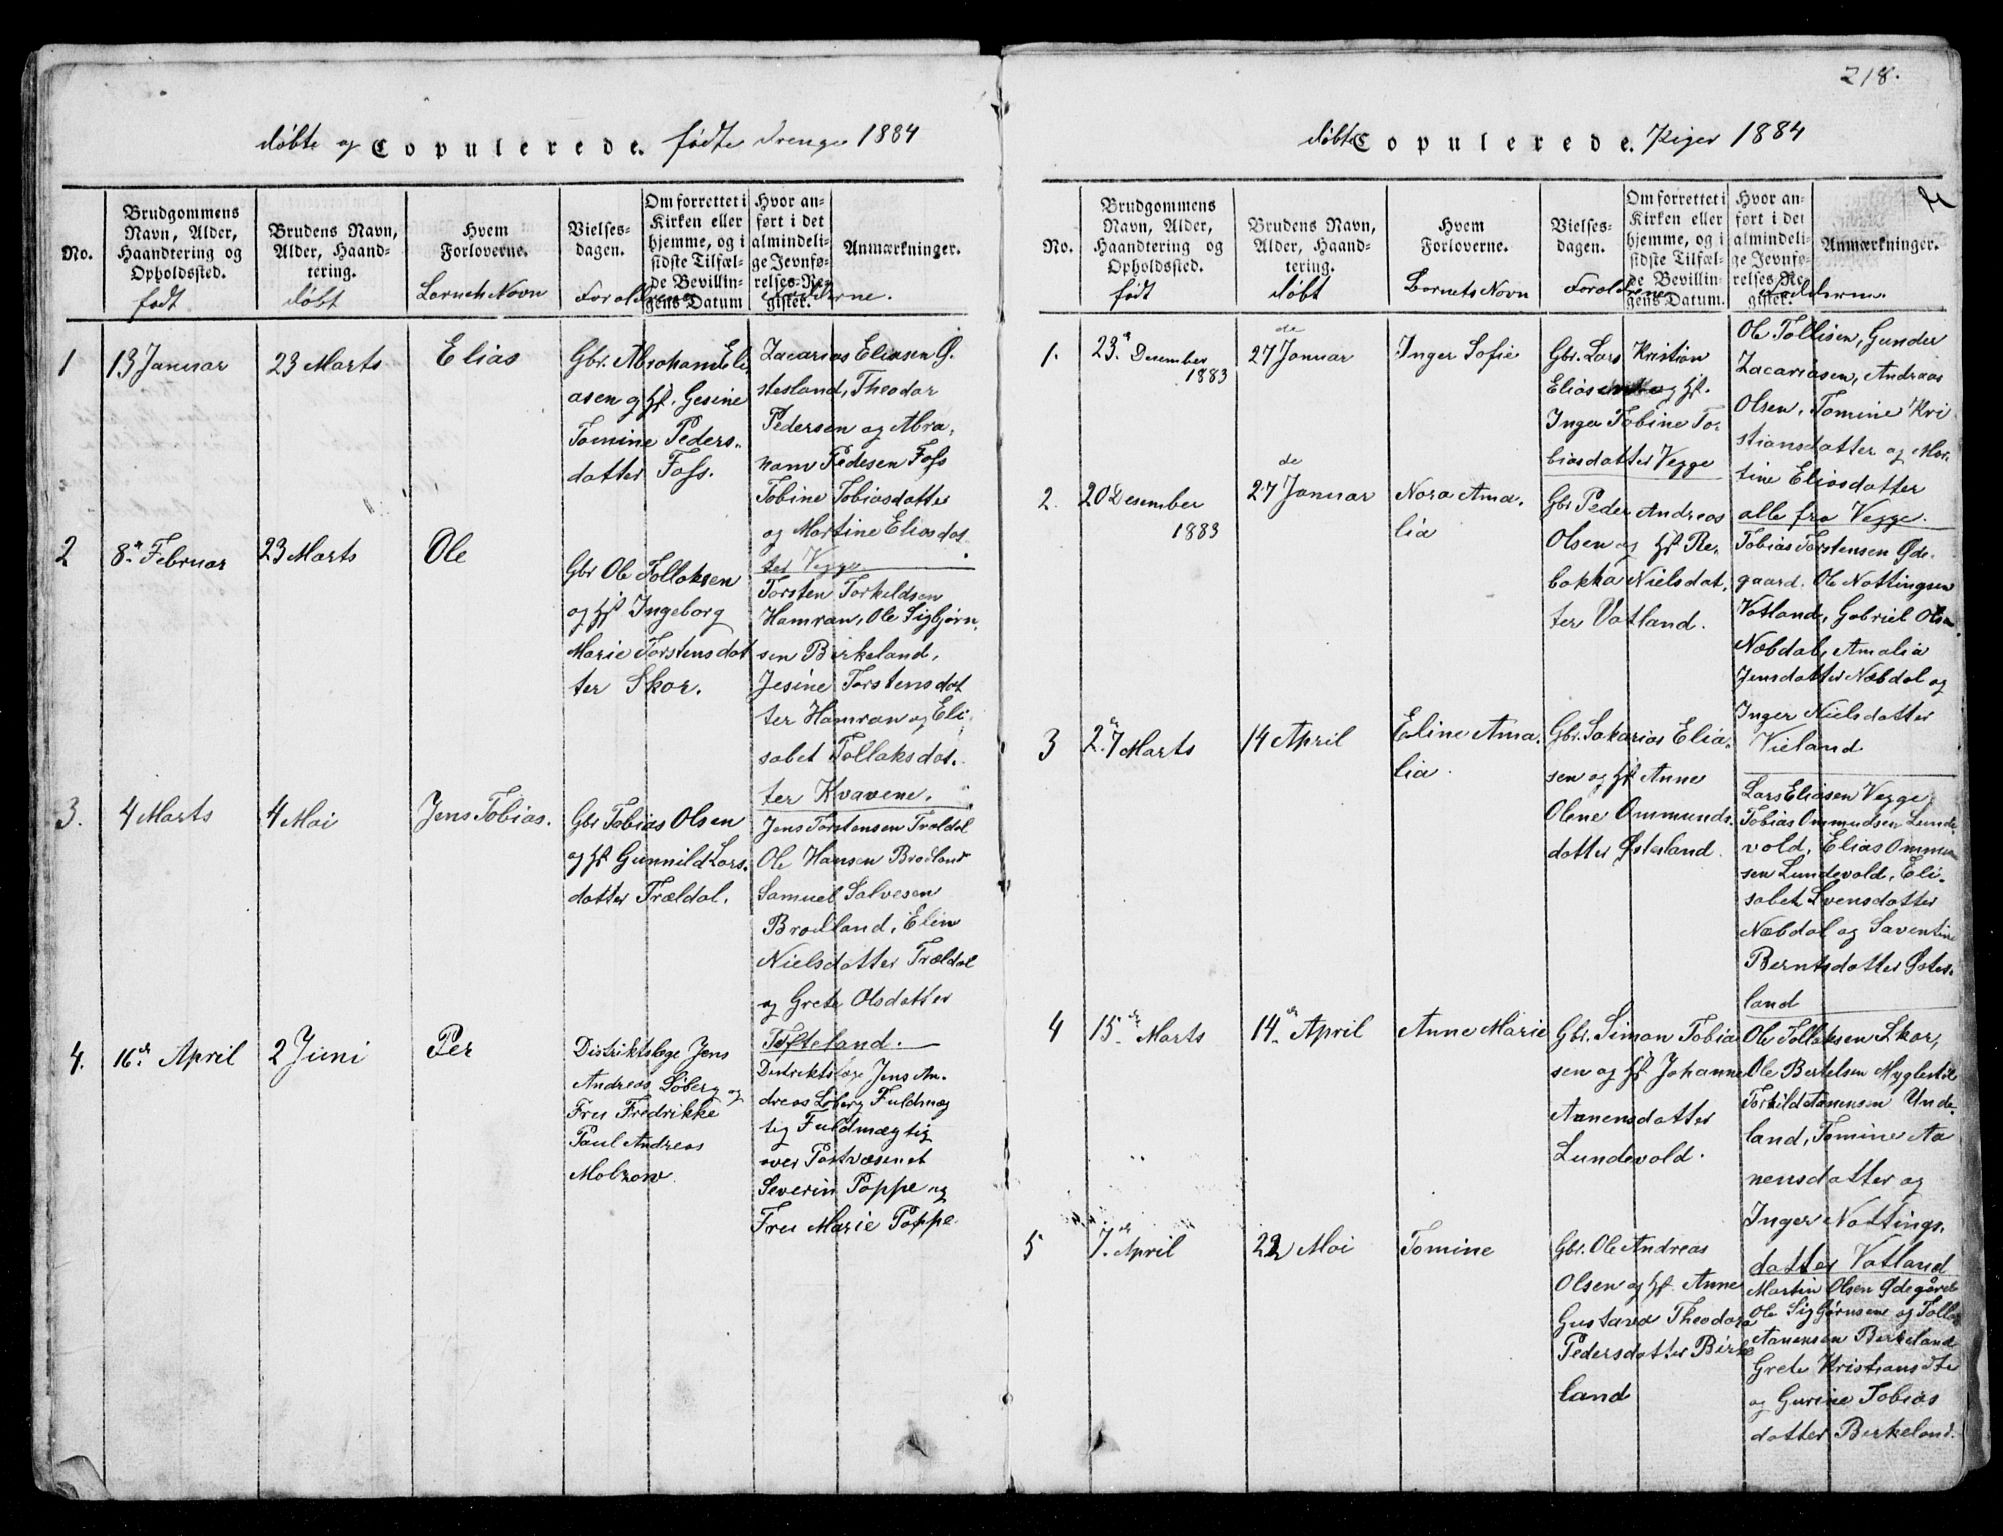 218.
døbte og Copulerede. fødte drenge 1884
No.
Brudgommens
Navn, Alder,
Haandtering og
Opholdssted.
født
Brudens Navn,
Alder, Haand-
tering.
døbt
Hvem
Forloverne.
Barnets Navn
Vielses-
dagen.
Foroldrene
Om forrettet i
Kirken eller
hjemme, og i
sidste Tilfæl-
de Bevillin-
gens Datum
Hvor an-
ført i det
almindeli-
ge Jevnfø-
relses-Re-
gister.
Fadderne.
Anmærkninger.
1
13 Januar
23 Marts
Elias
Gbr. Abraham Eli-
asen og Hst. Gesine
Tomine Peders-
datter Foss.
Zacarias Eliasen Ø-
stesland, Theodor
Pedersen og Abra-
ham Pedesen Foss
Tobine Tobiasdatter
og Martine Eliasdat-
ter Vegge
2
8de Februar
23 Marts
Ole
Gbr Ole Tollaksen
og Hst Ingeborg
Marie Torstensdat
ter Skor.
Torsten Torkildsen
Hamran, Ole Sigbjørn-
sen Birkeland,
Jesine Torstensdat
ter Hamran og Eli-
sabet Tollaksdat-
ter Kvavene.
3.
4 Marts
4 Mai
Jens Tobias.
Gbr Tobias Olsen
og Hst Gunnild Lars-
datter Trældal.
Jens Torstensen Trældal
Ole Hansen Brodland
Samuel Salvesen
Brodland, Elin
Nielsdatter Trældal
og Grete Olsdatter
Tofteland.
4.
16de April
2 Juni
Per
Distriktslæge Jens
Andreas Løberg og
Fru Fredrikke
Paul Andreas
Molzow.
Distriktslæge Jens An-
dreas Løberg Fuldmæg
tig Fuldmægtig
over Postvæsenet
Severin Poppe og
Fru Marie Poppe.
døbte Copulerede. Piger 1884
No.
Brudgommens
Navn, Alder,
Haandtering og
Opholdssted.
født
Brudens Navn,
Alder, Haand-
tering.
døbt
Hvem
Forloverne.
Barnets Navn
Vielses-
dagen.
Foroldrene
Om forrettet i
Kirken eller
hjemme, og i
sidste Tilfæl-
de Bevillin-
gens Datum.
Hvor an-
ført i det
almindeli-
ge Jevnfø-
relses-Re-
gister.
Fadderne.
Anmærkninger.
1.
23de Desember
1883
27de Januar
Inger Sofie
Gbr. Lars Kristian
Eliasen og Hst.
Inger Tobine To-
biasdatter Vegge
Ole Tollisen, Gunder
Zacariasen, Andreas
Olsen, Tomine Kri
stiansdatter og Mar-
tine Eliasdatter
alle fra Vegge.
2.
20 Desember
1883
27de Januar
Nora Ama-
lia
Gbr Peder Andreas
Olsen og Hst Re-
bokka Nielsdat-
ter Vatland.
Tobias Torstensen Øde-
gaard. Ole Nottingsen
Vatland, Gabriel Olsen
Næbdal, Amalia
Jensdatter Næbdal og
Inger Nielsdatter
Vieland
3
27de Marts
14 April
Eline Ama-
lia.
Gbr. Sakarias Elia-
sen og Hst Anne
Olene Ommunds-
datter Østesland.
Lars Eliasen Vegge,
Tobias Ommudsen Lunde-
vold, Elias Ommun
sen Lundevold, Eli-
sabet Svensdatter
Næbdal og Saventine
Berntsdatter Østes-
land
4
15de Marts
14de April
Anne Marie
Gbr. Simon Tobia
sen og Hst Johanne
Aanensdatter
Lundevold.
Ole Tollaksen Skor,
Ole Bertelsen Myglestøl
Torkild Aanensen Unde-
land, Tomine Aa
nensdatter og
Inger Nottings-
datter Vatland
5
7de April
22 Mai
Tomine
Gbr. Ole Andreas
Olsen og Hst. Anne
Gustava Theodora
Pedersdatter Birke
land
Martin Olsen Ødegård
Ole Sigbjørnsen og Tollak
Aanensen Birkeland
Grete Kristiansdte
og Gurine Tobias
datter Birkeland.